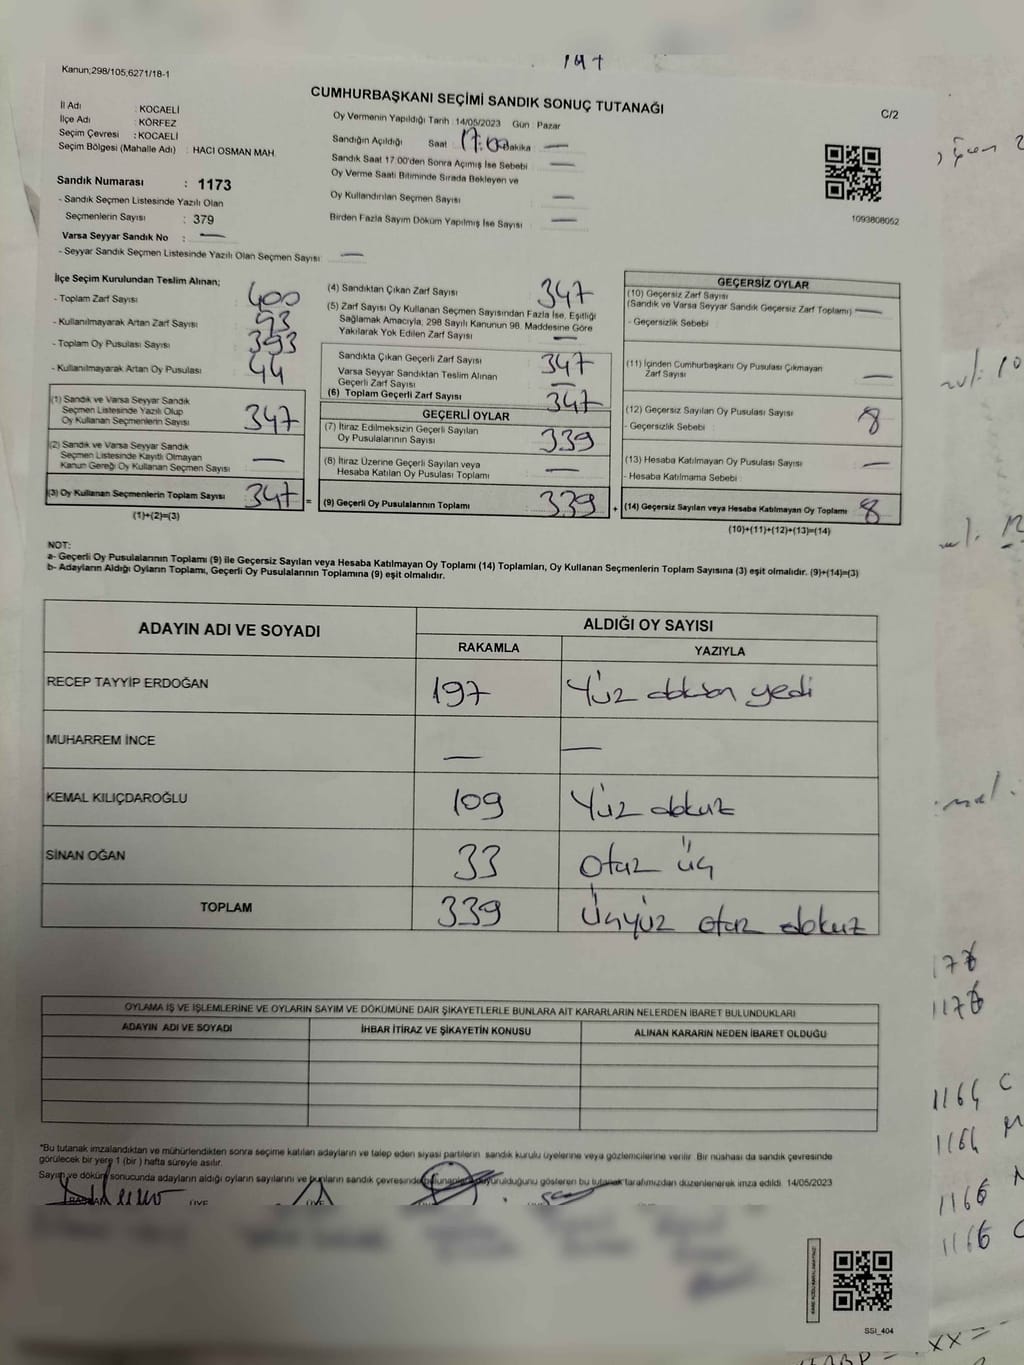 Kanun;298/105,6271/18-1
CUMHURBAŞKANI SEÇİMİ SANDIK SONUÇ TUTANAĞI
C/2
İl Adı : KOCAELİ
İlçe Adı : KÖRFEZ
Seçim Çevresi : KOCAELİ
Seçim Bölgesi (Mahalle Adı) : HACI OSMAN MAH.
Sandık Numarası : 1173
- Sandık Seçmen Listesinde Yazılı Olan
Seçmenlerin Sayısı : 379
Varsa Seyyar Sandık No : —
- Seyyar Sandık Seçmen Listesinde Yazılı Olan Seçmen Sayısı : —
Oy Vermenin Yapıldığı Tarih :14/05/2023 Gün : Pazar
Sandığın Açıldığı Saat 17:00 Dakika —
Sandık Saat 17.00'den Sonra Açımış İse Sebebi —
Oy Verme Saati Bitiminde Sırada Bekleyen ve
Oy Kullandırılan Seçmen Sayısı —
Birden Fazla Sayım Döküm Yapılmış İse Sayısı —
1093808052
İlçe Seçim Kurulundan Teslim Alınan;
- Toplam Zarf Sayısı 400
- Kullanılmayarak Artan Zarf Sayısı 53
- Toplam Oy Pusulası Sayısı 393
- Kullanılmayarak Artan Oy Pusulası 44
(1) Sandık ve Varsa Seyyar Sandık
Seçmen Listesinde Yazılı Olup
Oy Kullanan Seçmenlerin Sayısı 347
(2) Sandık ve Varsa Seyyar Sandık
Seçmen Listesinde Kayıtlı Olmayan
Kanun Gereği Oy Kullanan Seçmen Sayısı —
(3) Oy Kullanan Seçmenlerin Toplam Sayısı 347 =
(1)+(2)=(3)
(4) Sandıktan Çıkan Zarf Sayısı 347
(5) Zarf Sayısı Oy Kullanan Seçmen Sayısından Fazla İse, Eşitliği
Sağlamak Amacıyla, 298 Sayılı Kanunun 98. Maddesine Göre
Yakılarak Yok Edilen Zarf Sayısı —
Sandıkta Çıkan Geçerli Zarf Sayısı 347
Varsa Seyyar Sandıktan Teslim Alınan
Geçerli Zarf Sayısı —
(6) Toplam Geçerli Zarf Sayısı 347
GEÇERLİ OYLAR
(7) İtiraz Edilmeksizin Geçerli Sayılan
Oy Pusulalarının Sayısı 339
(8) İtiraz Üzerine Geçerli Sayılan veya
Hesaba Katılan Oy Pusulası Toplamı —
(9) Geçerli Oy Pusulalarının Toplamı 339 +
GEÇERSİZ OYLAR
(10) Geçersiz Zarf Sayısı
(Sandık ve Varsa Seyyar Sandık Geçersiz Zarf Toplamı) —
- Geçersizlik Sebebi
(11) İçinden Cumhurbaşkanı Oy Pusulası Çıkmayan
Zarf Sayısı —
(12) Geçersiz Sayılan Oy Pusulası Sayısı 8
- Geçersizlik Sebebi
(13) Hesaba Katılmayan Oy Pusulası Sayısı —
- Hesaba Katılmama Sebebi
(14) Geçersiz Sayılan veya Hesaba Katılmayan Oy Toplamı 8
(10)+(11)+(12)+(13)=(14)
NOT:
a- Geçerli Oy Pusulalarının Toplamı (9) ile Geçersiz Sayılan veya Hesaba Katılmayan Oy Toplamı (14) Toplamları, Oy Kullanan Seçmenlerin Toplam Sayısına (3) eşit olmalıdır. (9)+(14)=(3)
b- Adayların Aldığı Oyların Toplamı, Geçerli Oy Pusulalarının Toplamına (9) eşit olmalıdır.
ADAYIN ADI VE SOYADI
ALDIĞI OY SAYISI
RAKAMLA YAZIYLA
RECEP TAYYİP ERDOĞAN 197 Yüz doksan yedi
MUHARREM İNCE — —
KEMAL KILIÇDAROĞLU 109 Yüz dokuz
SİNAN OĞAN 33 Otuz üç
TOPLAM 339 Üçyüz otuz dokuz
OYLAMA İŞ VE İŞLEMLERİNE VE OYLARIN SAYIM VE DÖKÜMÜNE DAİR ŞİKAYETLERLE BUNLARA AİT KARARLARIN NELERDEN İBARET BULUNDUKLARI
ADAYIN ADI VE SOYADI İHBAR İTİRAZ VE ŞİKAYETİN KONUSU ALINAN KARARIN NEDEN İBARET OLDUĞU
*Bu tutanak imzalandıktan ve mühürlendikten sonra seçime katılan adayların ve talep eden siyasi partilerin sandık kurulu üyelerine veya gözlemcilerine verilir. Bir nüshası da sandık çevresinde
görülecek bir yere 1 (bir) hafta süreyle asılır.
Sayım ve döküm sonucunda adayların aldığı oyların sayılarını ve bunların sandık çevresinde duyurulduğunu gösteren bu tutanak tarafımızdan düzenlenerek imza edildi. 14/05/2023
SSİ_404
1164 C
1164
1166
1166
XX =